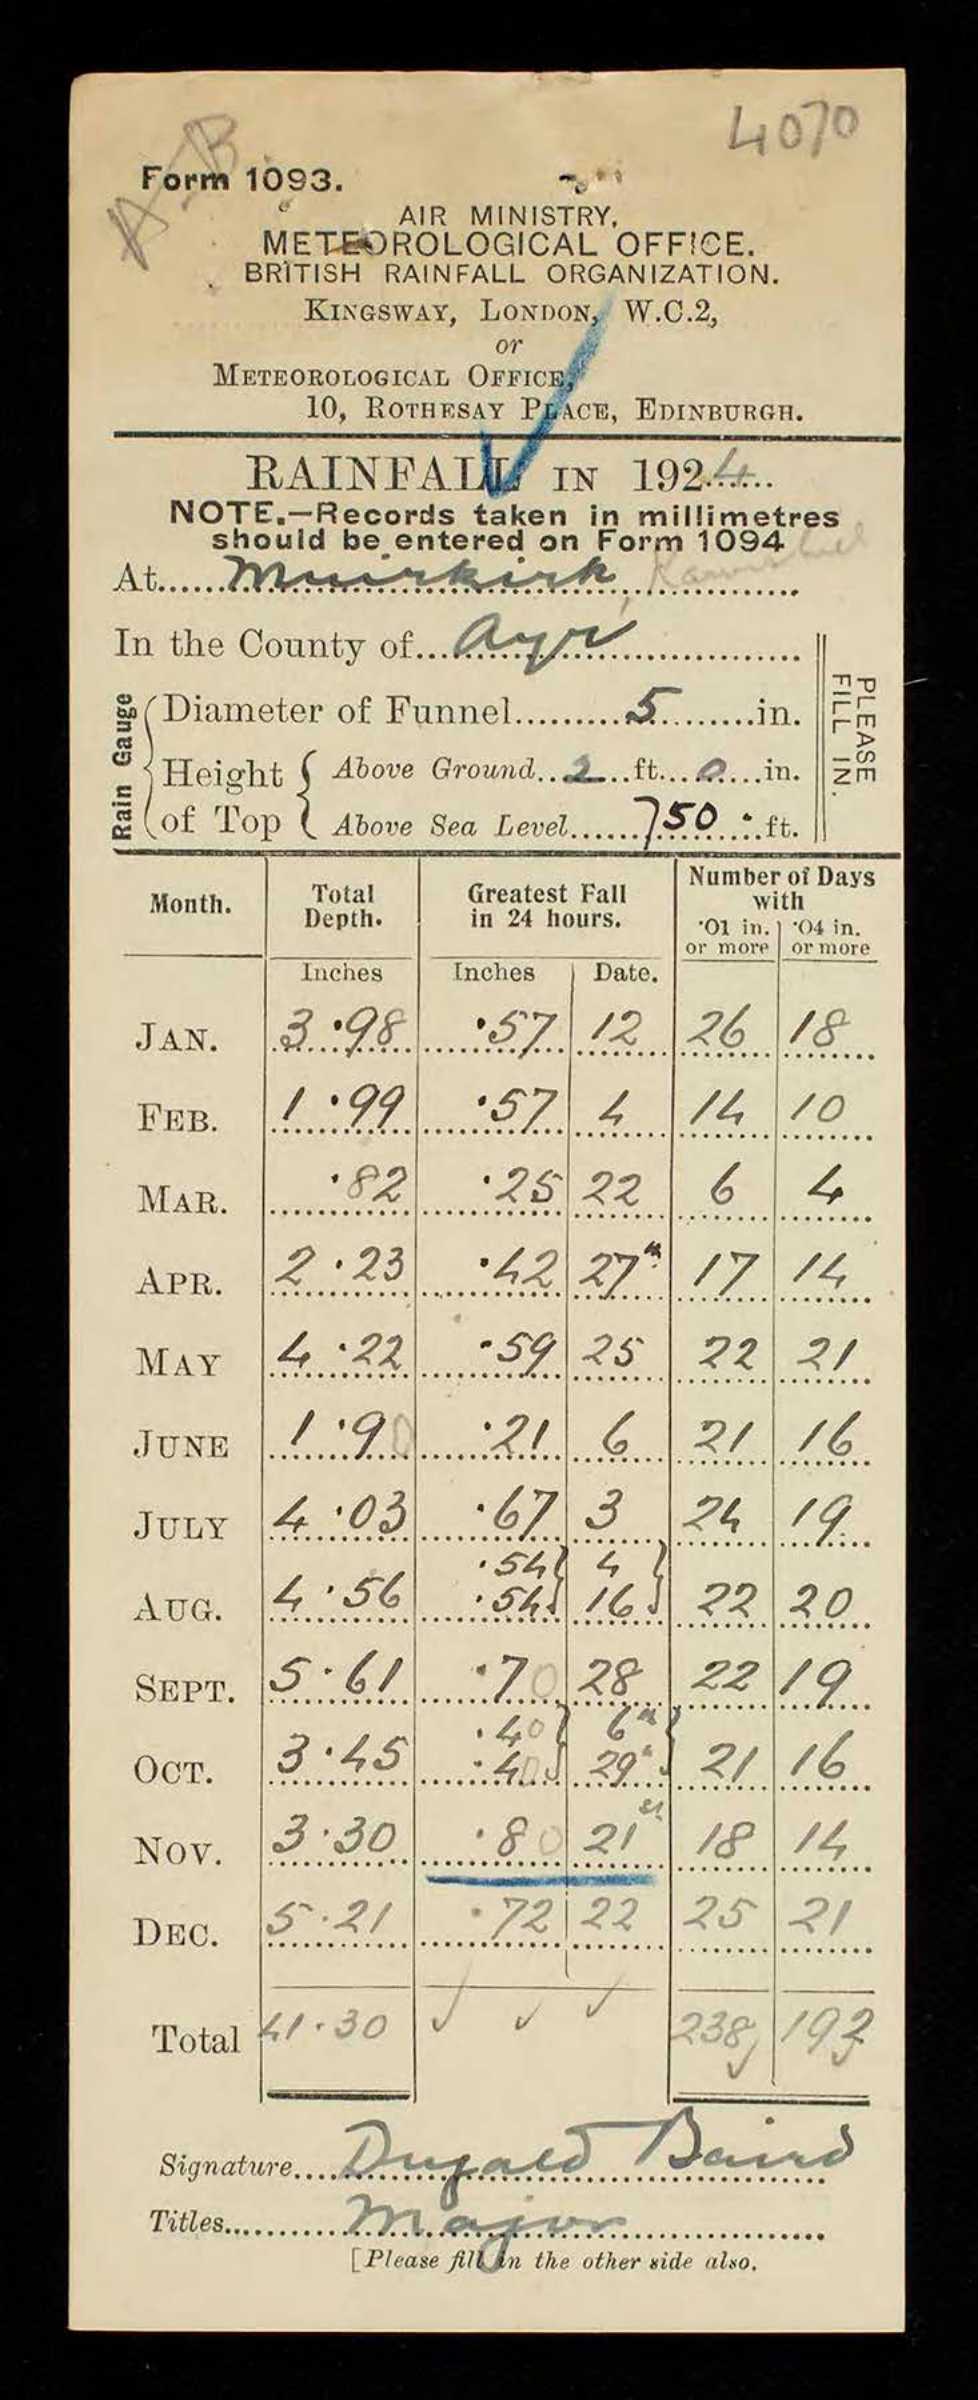 4070
A-B
Form 1093.
AIR MINISTRY,
METEOROLOGICAL OFFICE.
BRITISH RAINFALL ORGANIZATION.
KINGSWAY, LONDON, W.C.2,
or
METEOROLOGICAL OFFICE,
10, ROTHESAY PLACE, EDINBURGH.
RAINFALL IN 1924
NOTE.—Records taken in millimetres
should be entered on Form 1094
At Muirkirk
In the County of Ayr
PLEASE FILL IN.
Rain Gauge
Diameter of Funnel 5 in.
Height of Top
Above Ground 2 ft. 0 in.
Above Sea Level 750 ft.
Month. Total Depth. Greatest Fall in 24 hours. Number of Days with
·01 in. or more ·04 in. or more
Inches Inches Date.
JAN. 3·98 ·57 12 26 18
FEB. 1·99 ·57 4 14 10
MAR. ·82 ·25 22 6 4
APR. 2·23 ·42 27th 17 14
MAY 4·22 ·59 25 22 21
JUNE 1·90 ·21 6 21 16
JULY 4·03 ·67 3 24 19
·54 4
AUG. 4·56 ·54 16 22 20
SEPT. 5·61 ·70 28 22 19
·40 6th
OCT. 3·45 ·40 29th 21 16
NOV. 3·30 ·80 21st 18 14
DEC. 5·21 ·72 22 25 21
Total 41·30 238 192
Signature Dugald Baird
Titles Major
[Please fill in the other side also.